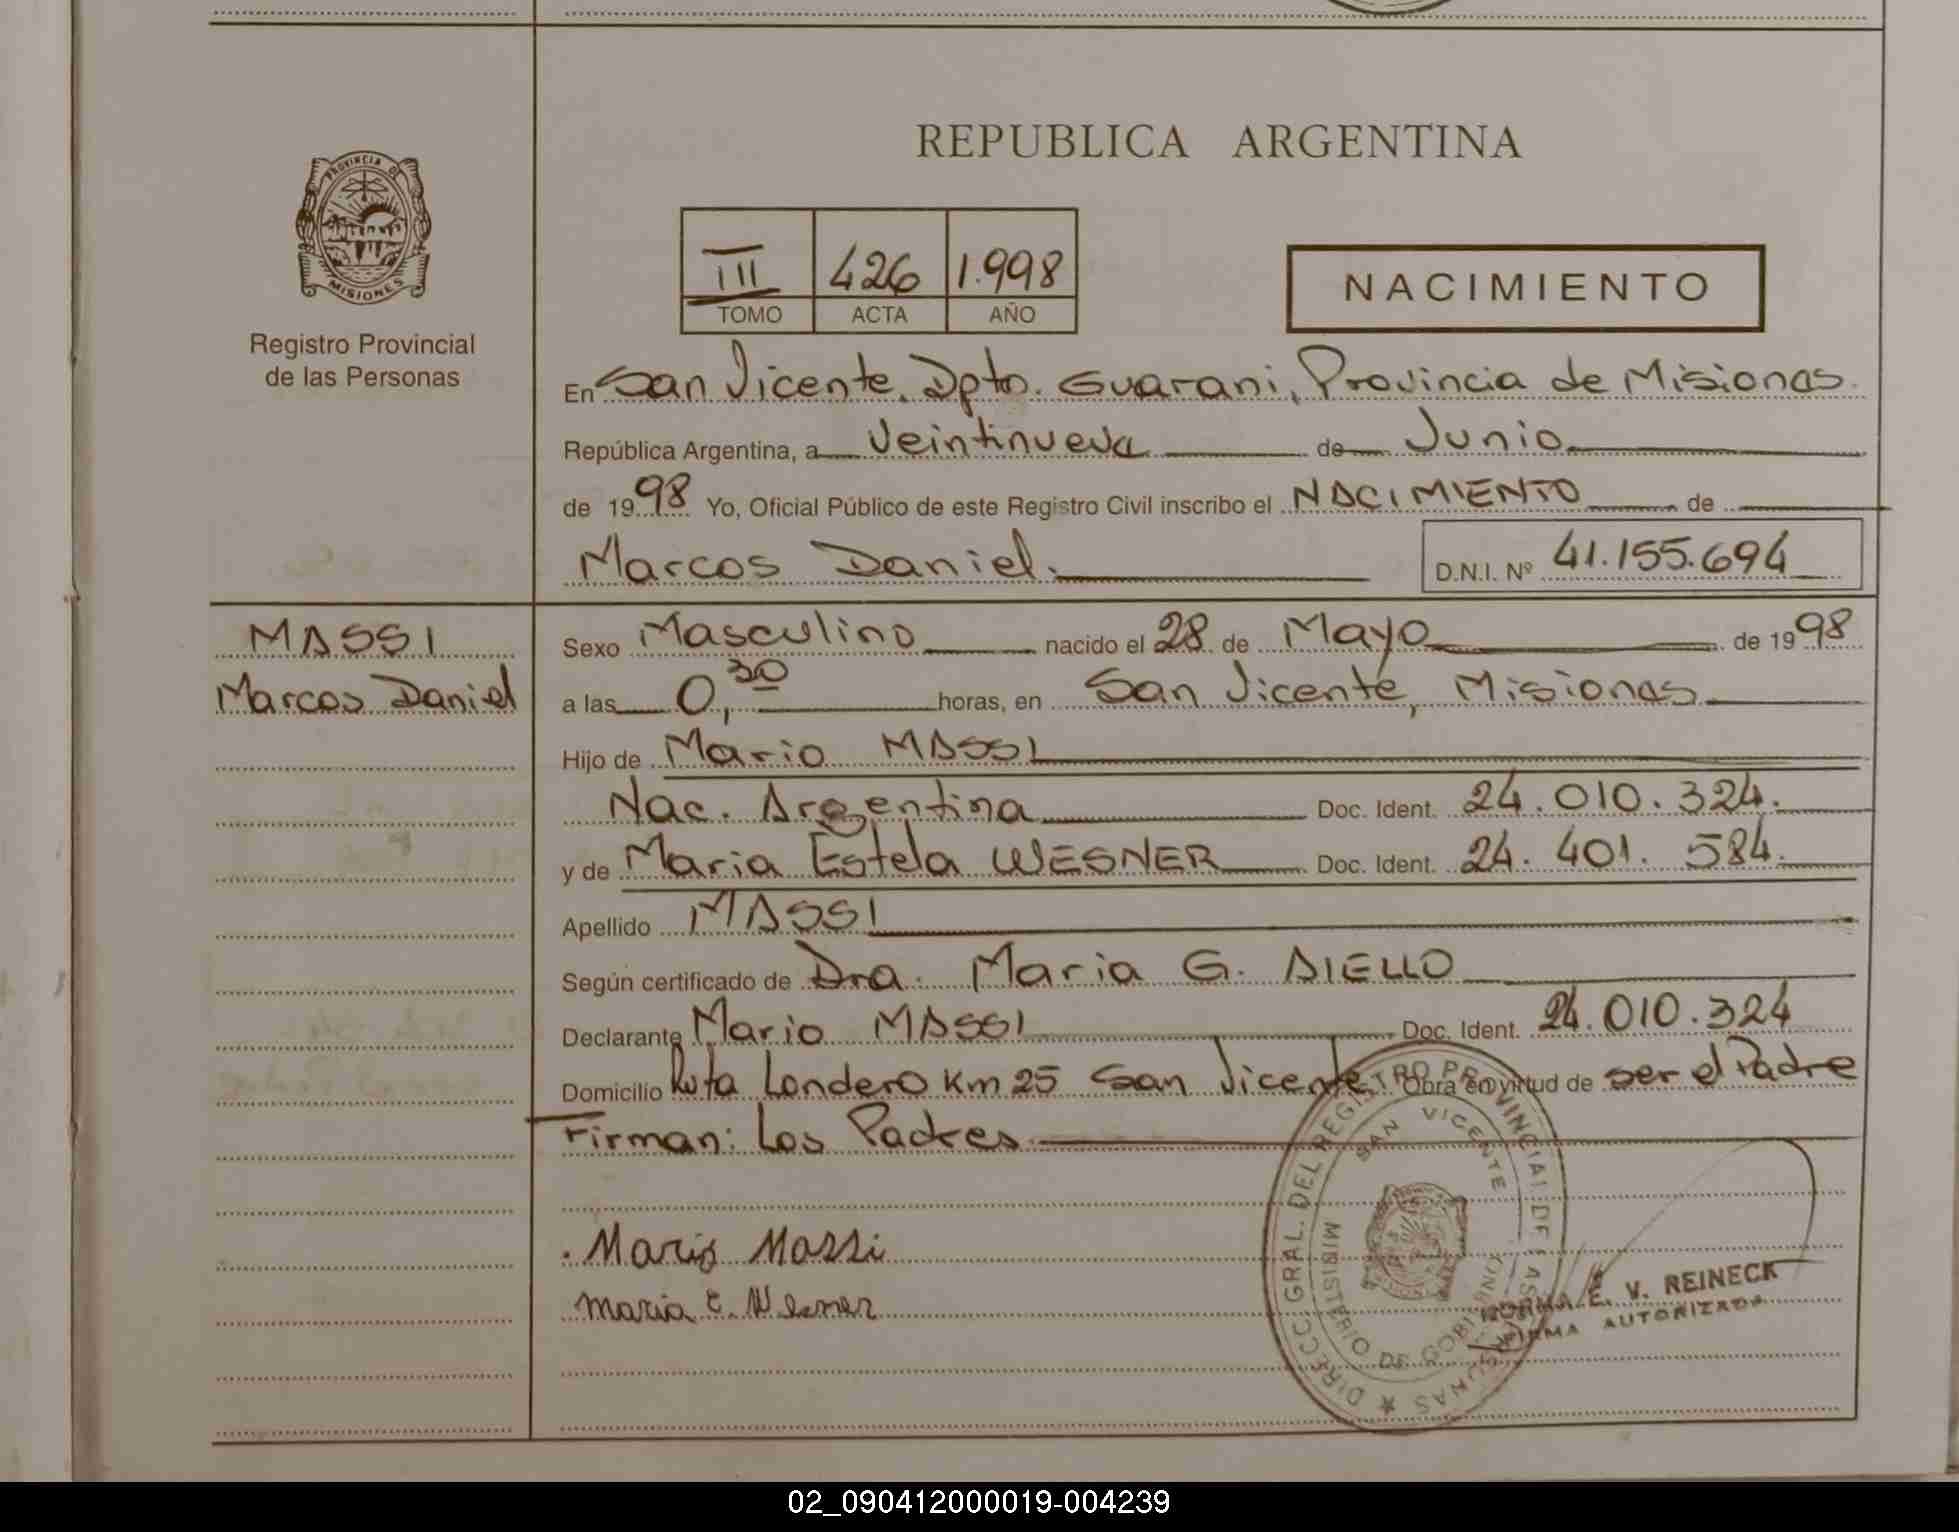 REPUBLICA ARGENTINA
PROVINCIA DE
MISIONES
Registro Provincial
de las Personas
III 426 1.998
TOMO ACTA AÑO
NACIMIENTO
En San Vicente, Dpto. Guarani, Provincia de Misiones.
República Argentina, a Veintinueve de Junio
de 1998 Yo, Oficial Público de este Registro Civil inscribo el NACIMIENTO de
Marcos Daniel. D.N.I. Nº 41.155.694
MASSI
Marcos Daniel
Sexo Masculino nacido el 28 de Mayo de 1998
a las 0,30 horas, en San Vicente, Misiones
Hijo de Mario MASSI
Nac. Argentina Doc. Ident. 24.010.324.
y de Maria Estela WESNER Doc. Ident. 24.401.584.
Apellido MASSI
Según certificado de Dra. Maria G. AIELLO
Declarante Mario MASSI Doc. Ident. 24.010.324
Domicilio Ruta Londero Km 25 San Vicente Obra en virtud de ser el Padre
Firman: Los Padres
Mario Massi
Maria E. Wesner
DIRECC. GRAL. DEL REGISTRO PROVINCIAL DE LAS PERSONAS
SAN VICENTE
MINISTERIO DE GOBIERNO
NORMA E. V. REINECK
FIRMA AUTORIZADA
02_090412000019-004239